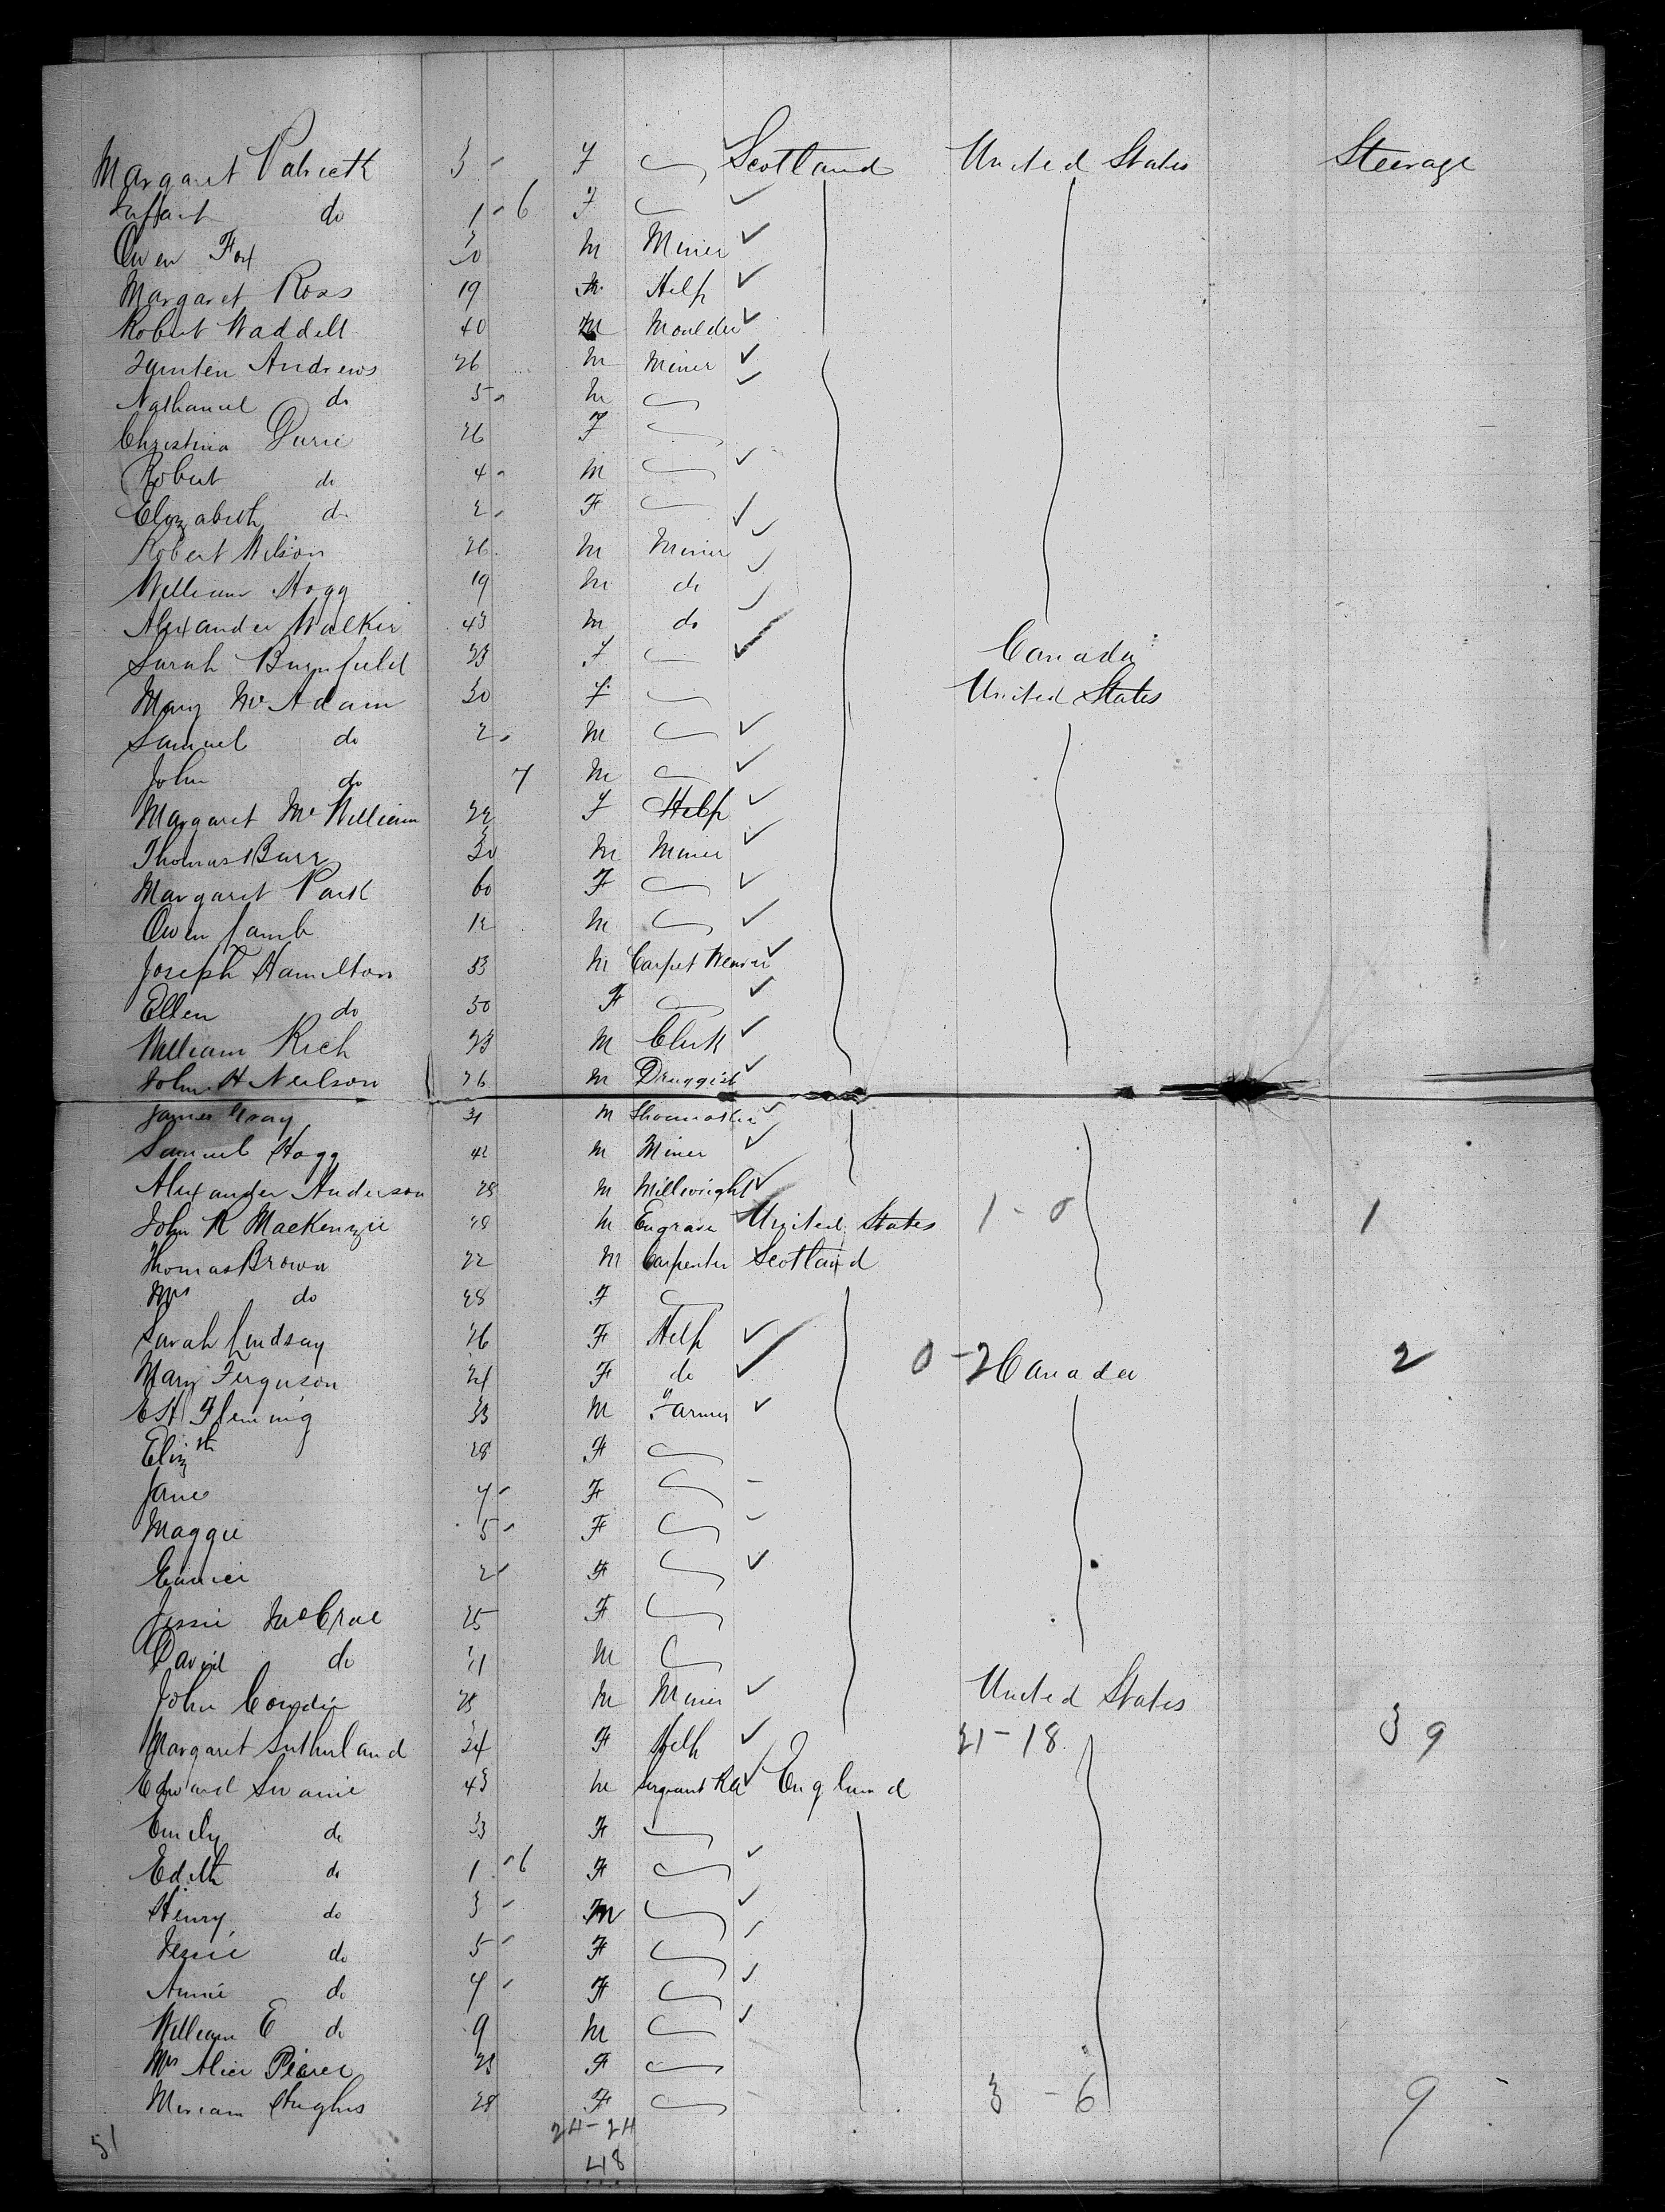 Margaret 3 - F Scotland United States Steerage
Infant do 1 - 6 F
Owen Fox 30 M Miner
Margaret Ross 19 Help
Robert Waddell 40 M Moulder
Andrews 26 M Miner
Nathaniel do 5 - M
Christina Durie 26 F
Robert do 4 - M
Elizabeth do 2 - F
Robert Wilson 26 M Miner
William Hogg 19 M do
Alexander Walker 43 M do
Sarah 23 F Canada
Mary McAdam 30 F United States
Samuel do 2 - M
John do 7 M
Margaret McWilliam 22 F Help
Thomas Barr 30 M Miner
Margaret Park 60 F
Owen Lamb 12 M
Joseph Hamilton 53 M Carpet Weaver
Ellen do 50 F
William Rich 23 M Clerk
John H Neilson 26 M Druggist
James Gray 31 M Shoemaker
Samuel Hogg 42 M Miner
Alexander Anderson 28 M Millwright
John R MacKenzie 28 M Engraver United States 1 - 0 1
Thomas Brown 22 M Carpenter Scotland
Mrs do 28 F
Sarah Lindsay 26 F Help
Mary Ferguson 21 F do 0 - 2 Canada 2
E H Fleming 33 M Farmer
Elizth 28 F
Jane 7 - F
Maggie 5 - F
2 - F
Jessie McCrae 25 F
David do 21 M
John Cowdie 25 M Miner United States
Margaret Sutherland 24 F Help 21 - 18 39
Edward Swanie 43 M England
Emily do 33 F
Edith do 1 - 6 F
Henry do 3 - M
Jessie do 5 - F
Annie do 7 - F
William E do 9 M
Mrs Alice Pearce 25 F
Miriam Hughes 28 F 3 - 6 9
24 - 24
51 48